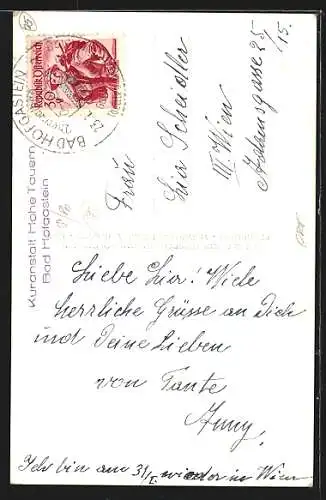 BAD HOFGASTEIN
Republik Österreich
30
Kuranstalt Hohe Tauern
Bad Hofgastein
Frau
Lia Scheidler
III Wien
Adamsgasse 25/15.
Liebe Lia! Viele
herrliche Grüsse an Dich
und Deine Lieben
von Tante
Anny,
Ich bin am 31/I. wieder in Wien